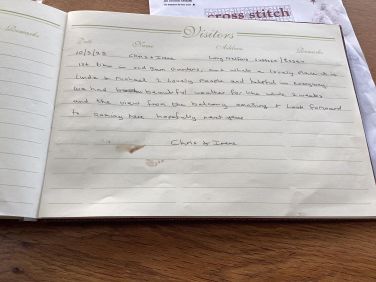 cross stitch
Visitors
Date Name Address Remarks
Remarks
10/5/23 Chris & Irene Long Melford Suffolk / Essex
1st time in old gun quarters, and what a lovely place it is
Linda & Michael 2 lovely people and helpful in
We had beautiful weather for the whole 2 weeks
and the view from the balcony amazing & look forward
to coming here hopefully next year
Chris & Irene